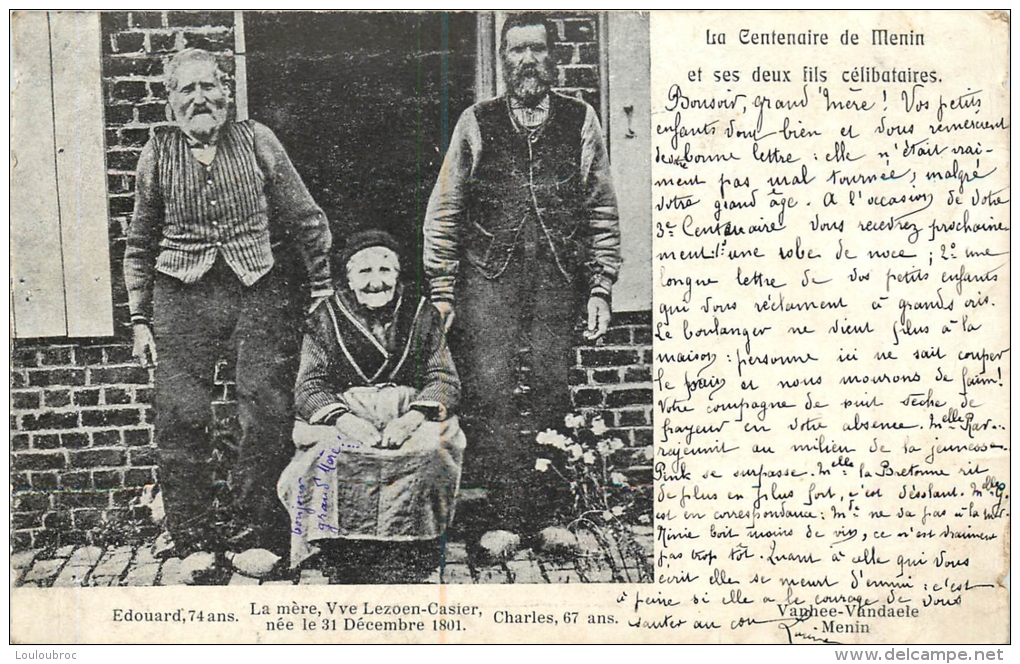 La Centenaire de Menin
et ses deux fils célibataires.
Bonsoir, grand'mère ! Vos petits
enfants vont bien et vous remercient
de votre bonne lettre : elle n'était vrai-
ment pas mal tournée, malgré
votre grand âge. A l'occasion de votre
3e Centenaire vous recevrez prochaine
ment : 1° une robe de noce ; 2° une
longue lettre de vos petits enfants
qui vous réclament à grands cris.
Le boulanger ne vient plus à la
maison : personne ici ne sait couper
le pain et nous mourons de faim !
Votre compagne de nuit sèche de
frayeur en votre absence. Melle Rav-
rajeunit au milieu de la jeunesse
Pink se surpasse. Melle la Bretonne rit
de plus en plus fort, c'est désolant. Melle G.
est en correspondance : Me ne va pas à la mer
boit moins de vin, ce n'est vraiment
pas trop tôt. Quant à celle qui vous
écrit elle se meurt d'ennui : c'est
à peine si elle a le courage de vous
sauter au cou
bonjour
grand'Mère !
Edouard, 74 ans.
La mère, Vve Lezoen-Casier,
née le 31 Décembre 1801.
Charles, 67 ans.
Vanhee-Vandaele
Menin
Louloubroc
www.delcampe.net